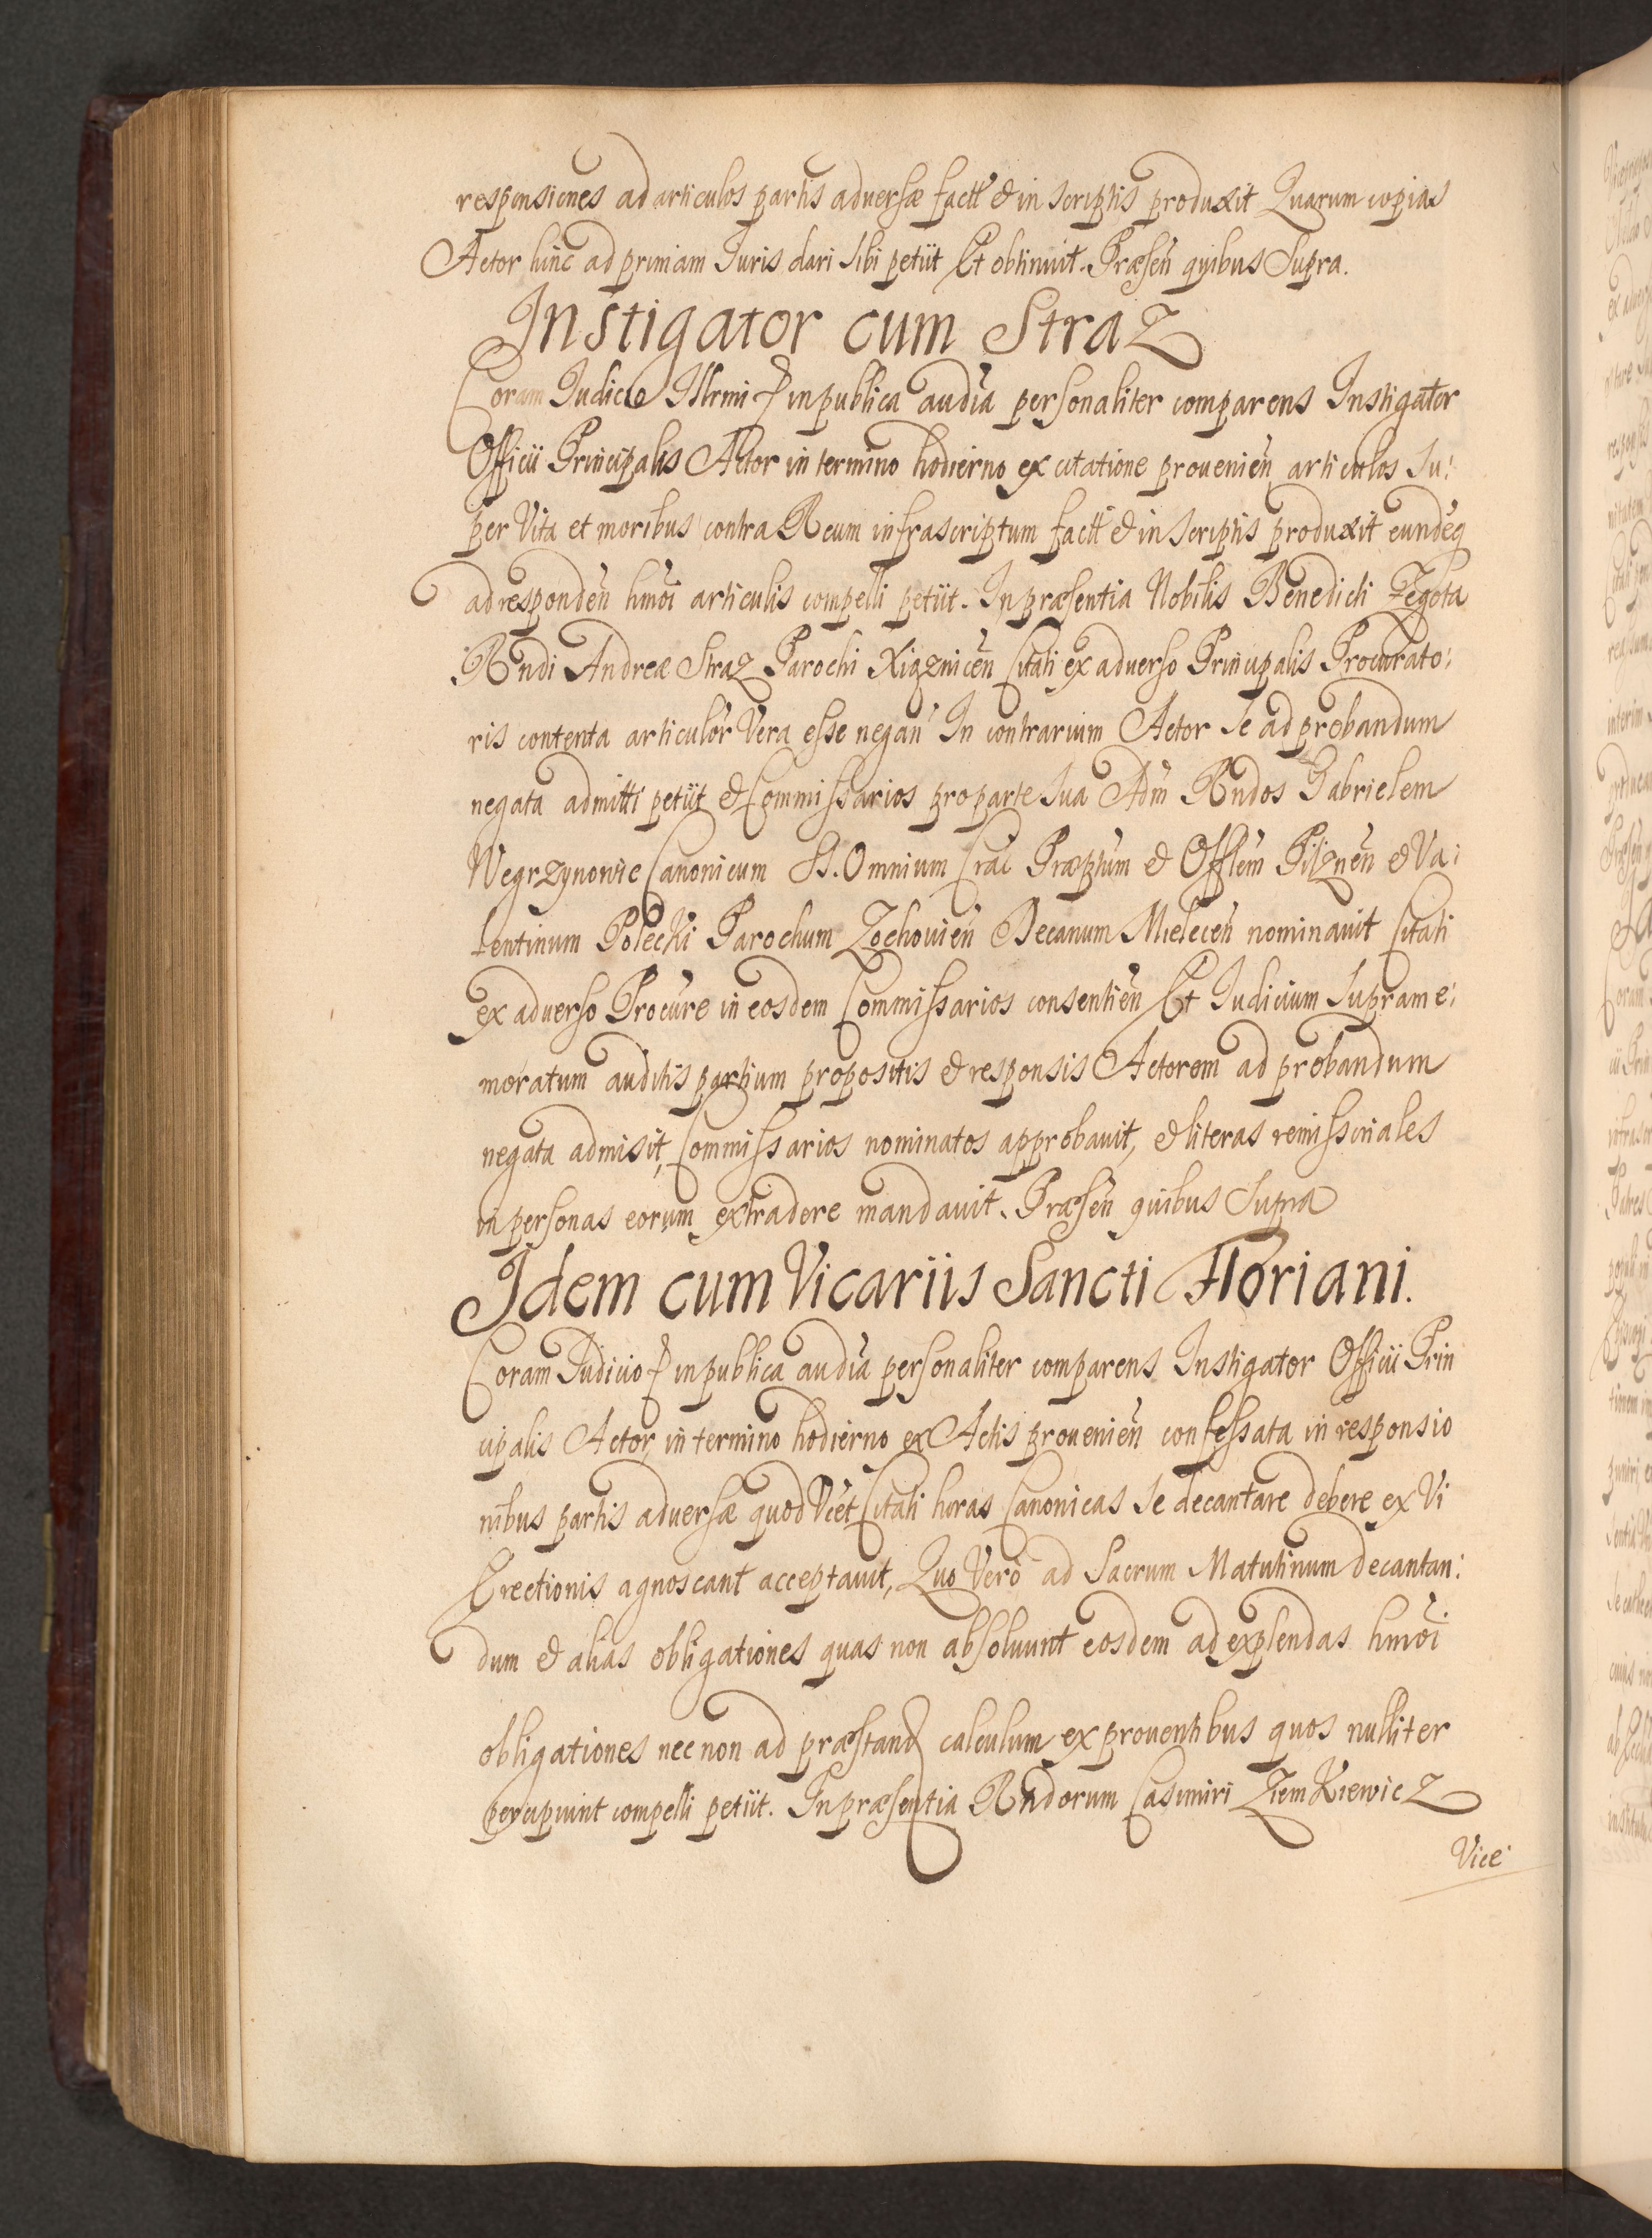 responsiones ad articulos partis adversæ factt et in scriptis produxit Quarum copias
Actor hinc ad primam Juris dari sibi petiit Et obtinuit. Præsen̄ quibus Supra.
Instigator cum Straz
Coram Judicio Illrmi in publica audia personaliter comparens Instigator
Officii Principalis Actor in termino hodierno ex citatione provenien̄ articulos Su:
per Vita et moribus contra Reum infrascriptum factt et in scriptis produxit eundēq
ad responden̄ hmōi articulis compelli petiit. In præsentia Nobilis Benedicti Zegota
Rndi Andreæ Straz Parochi Xiąznicen̄ Citati ex adverso Principalis Procurato:
ris contenta articulor̄ Vera esse negan̄ In contrarium Actor se ad probandum
negata admitti petiit et Commissarios pro parte sua Adm̄ Rndos Gabrielem
Wegrzynowic Canonicum SS. Omnium Crac̄ Præptum et Offlem Pilznen̄ et Va:
lentinum Polecki Parochum Zochovien̄ Decanum Mielecen̄ nominavit Citati
ex adverso Procure in eosdem Commissarios consentien̄ Et Judicium supra me:
moratum auditis partium propositis et responsis Actorem ad probandum
negata admisit, Commissarios nominatos approbavit, et literas remissoriales
in personas eorum extradere mandavit. Præsen̄ quibus Supra
Idem cum Vicariis Sancti Floriani.
Coram Judicio in publica audia personaliter comparens Instigator Officii Prin
cipalis Actor, in termino hodierno ex Actis provenien̄ confessata in responsio
nibus partis adversæ quod Vcet Citati horas Canonicas se decantare debere ex Vi
Erectionis agnoscant acceptavit, Quo Vero ad Sacrum Matutinum decantan:
dum et alias obligationes quas non absolvunt eosdem ad explendas hmōi
obligationes nec non ad præstand calculum ex proventibus quos nulliter
percipiunt compelli petiit. In præsentia Rndorum Casimiri Ziemkiewicz
Vice